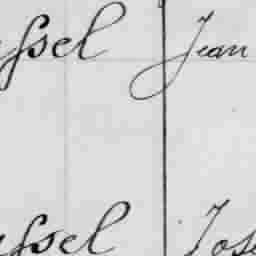 ssel Jean
ssel Jos